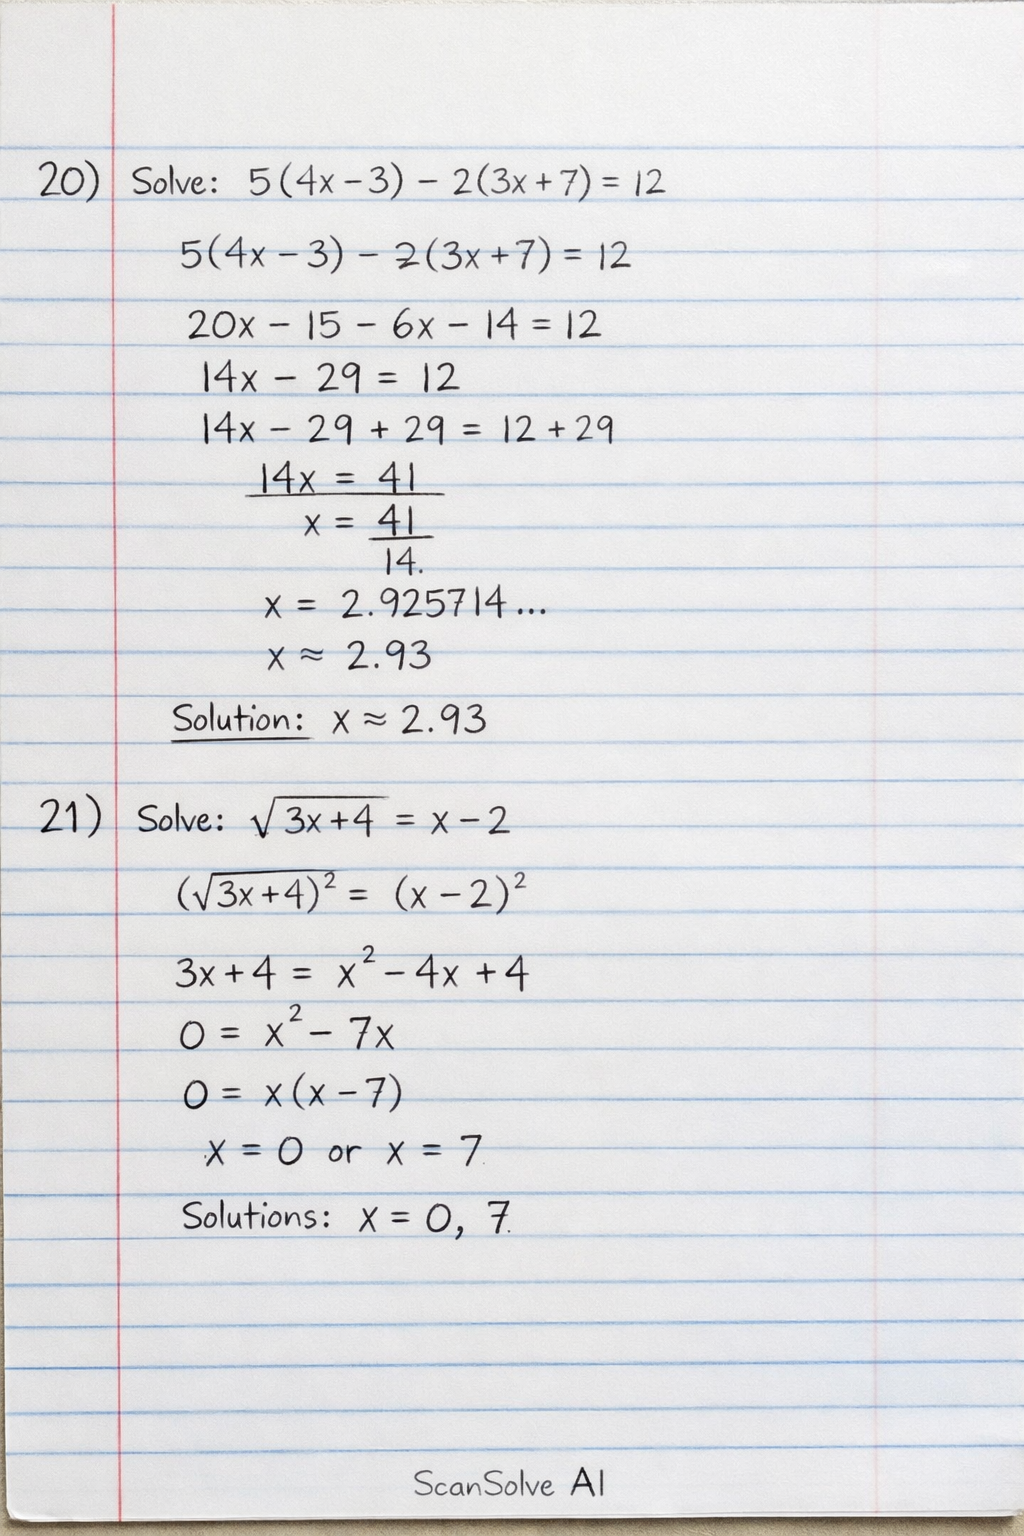 20) Solve: 5(4x – 3) – 2(3x + 7) = 12
5(4x – 3) – 2(3x + 7) = 12
20x – 15 – 6x – 14 = 12
14x – 29 = 12
14x – 29 + 29 = 12 + 29
14x = 41
x = 41
14.
x = 2.925714...
x ≈ 2.93
Solution: x ≈ 2.93
21) Solve: √3x+4 = x – 2
(√3x+4)² = (x – 2)²
3x + 4 = x² – 4x + 4
0 = x² – 7x
0 = x(x – 7)
x = 0 or x = 7
Solutions: x = 0, 7.
ScanSolve AI